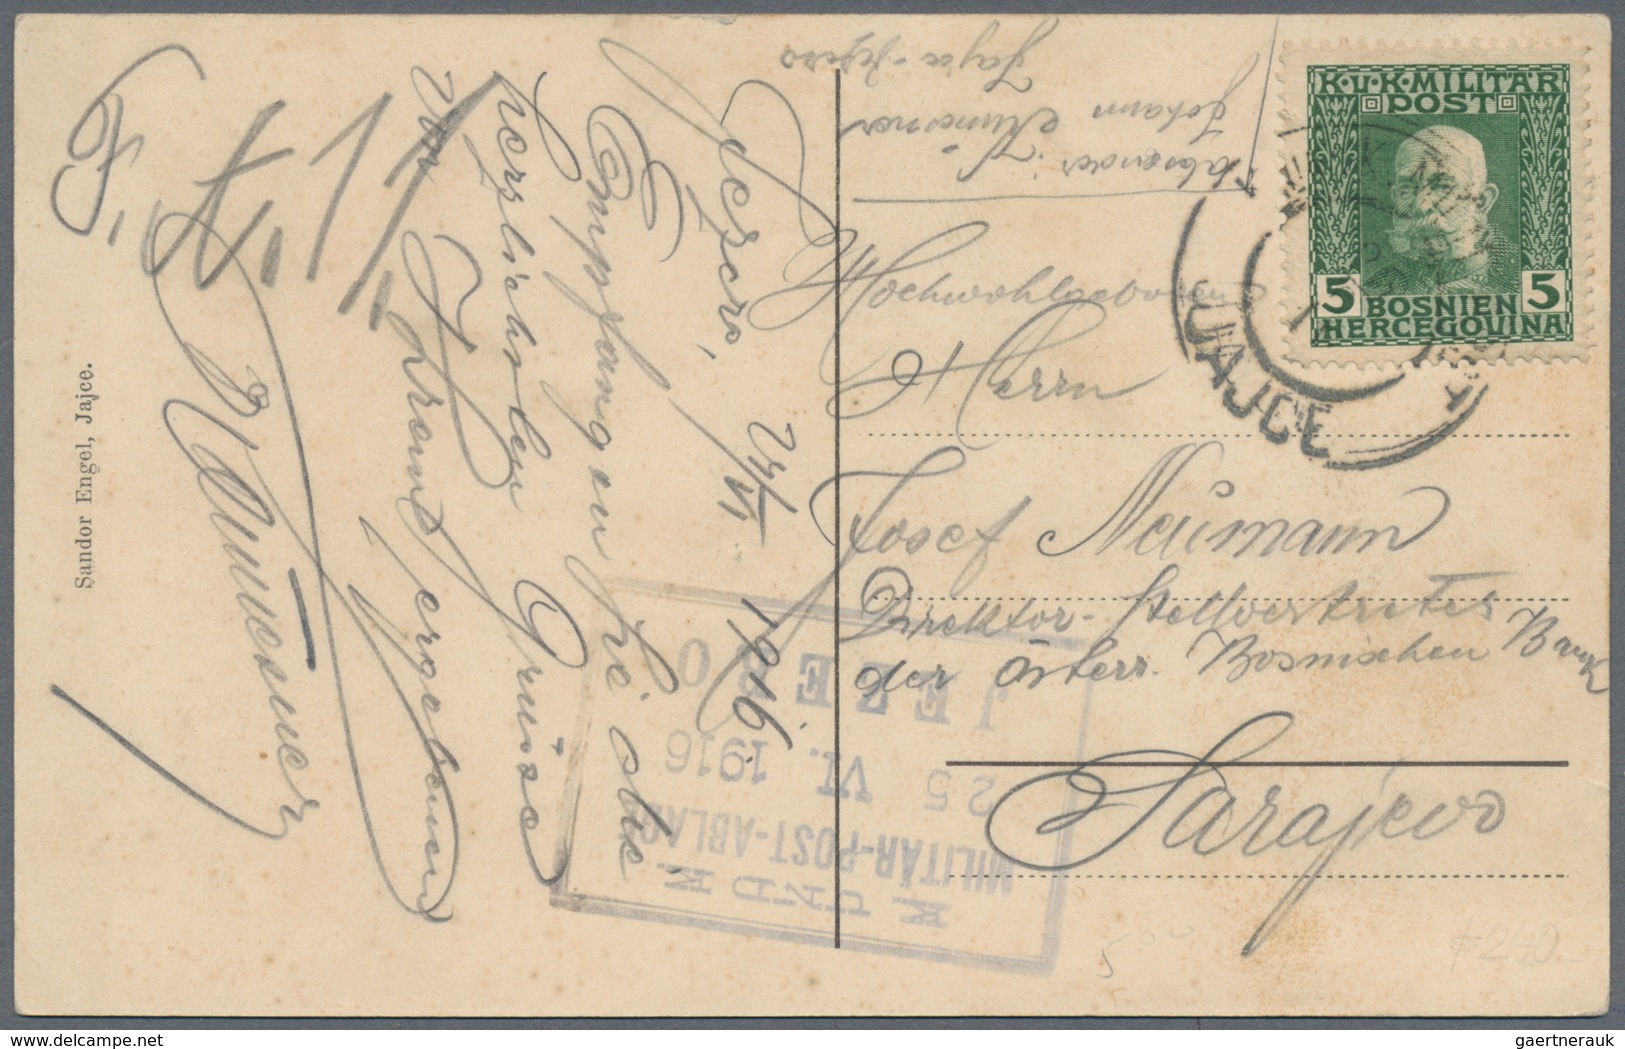 K.U.K. MILITÄR
POST
5 BOSNIEN 5
HERCEGOVINA
JAJCE
Absender:
Johann
Jajce-Jezero
Hochwohlgeboren
Herrn
Josef Neumann
Direktor-Stellvertreter
der österr. Bosnischen Bank
Sarajevo
Jezero, 24/VI. 1916.
Empfangen Sie die
herzlichsten Grüsse
von Ihrem ergebenen
K UND K
MILITÄR-POST-ABLAGE
25 VI. 1916
JEZERO
Sandor Engel, Jajce.
gaertnerauk